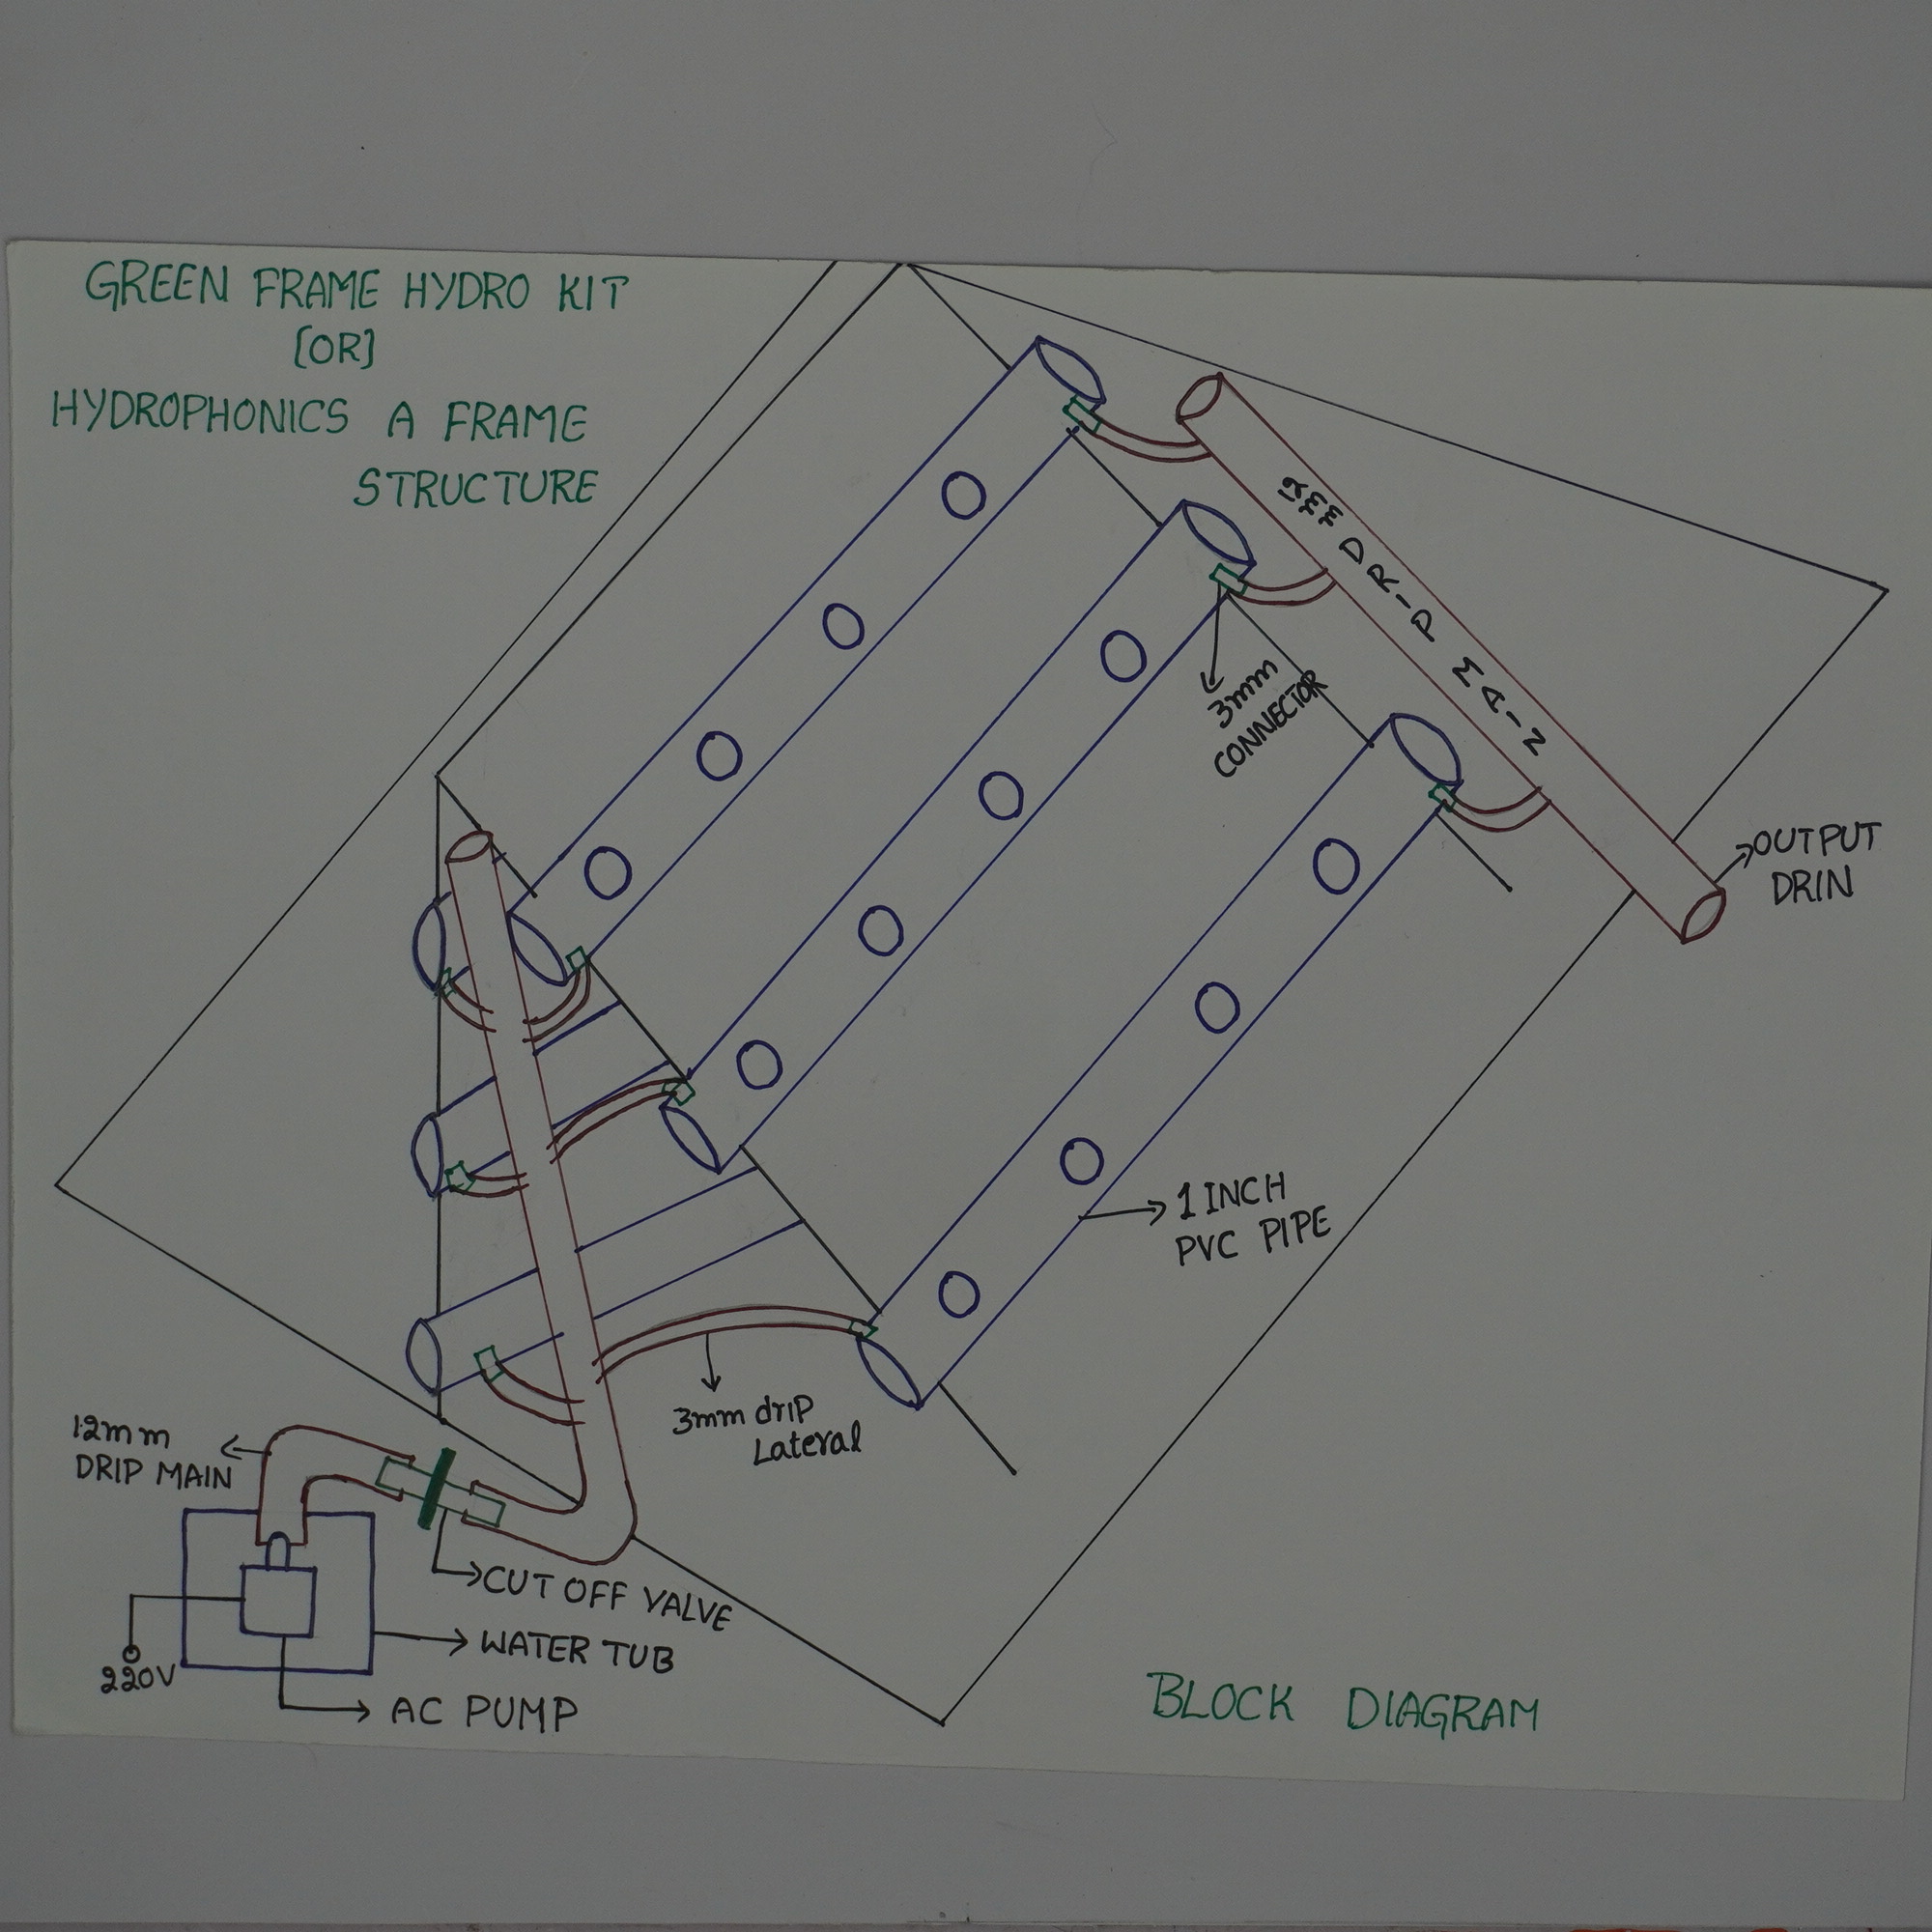 GREEN FRAME HYDRO KIT
[OR]
HYDROPHONICS A FRAME
STRUCTURE
12mm DRIP MAIN
3mm
CONNECTOR
OUTPUT
DRIN
1 INCH
PVC PIPE
3mm drip
Lateral
12mm
DRIP MAIN
CUT OFF VALVE
WATER TUB
220V
AC PUMP
BLOCK DIAGRAM